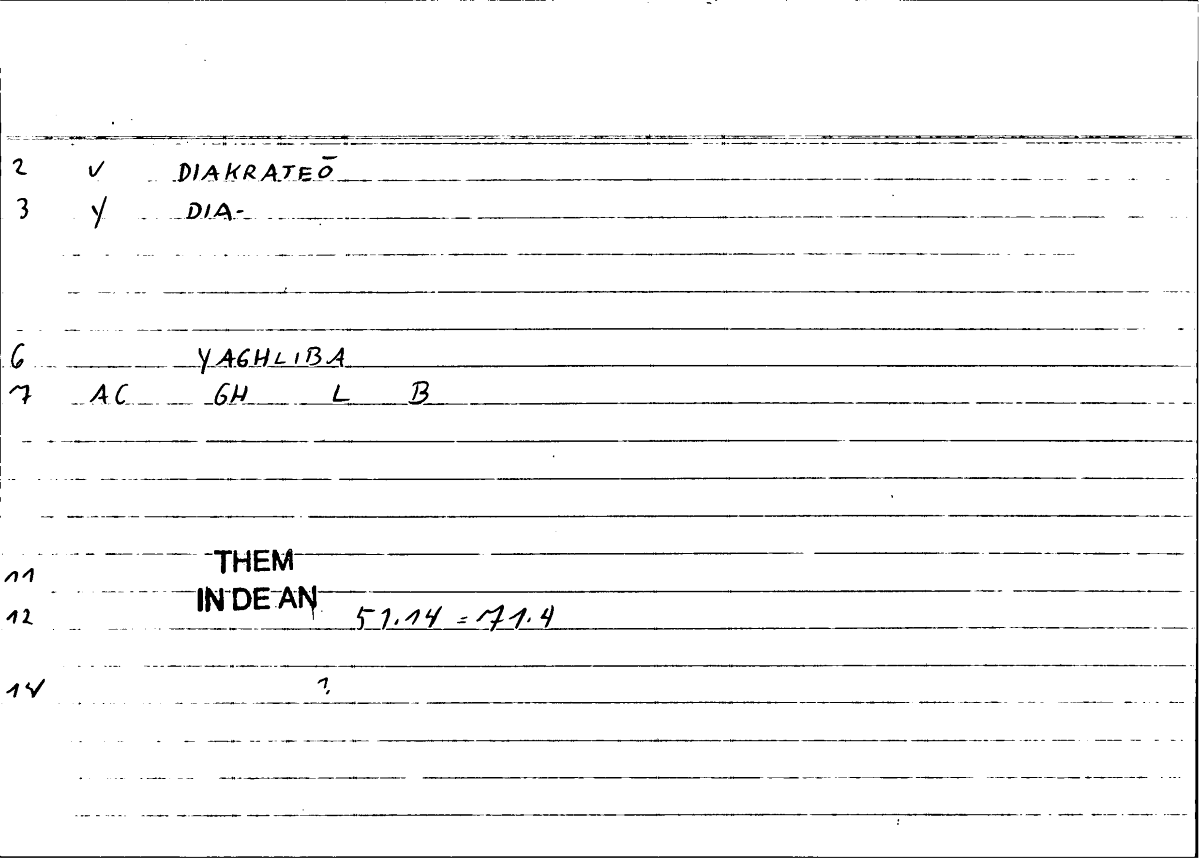 2 V DIAKRATEŌ
3 Y DIA-
6 YAGHLIBA
7 AC GH L B
11 THEM
IN DE AN
12 51.14 = 71.4
14 ?